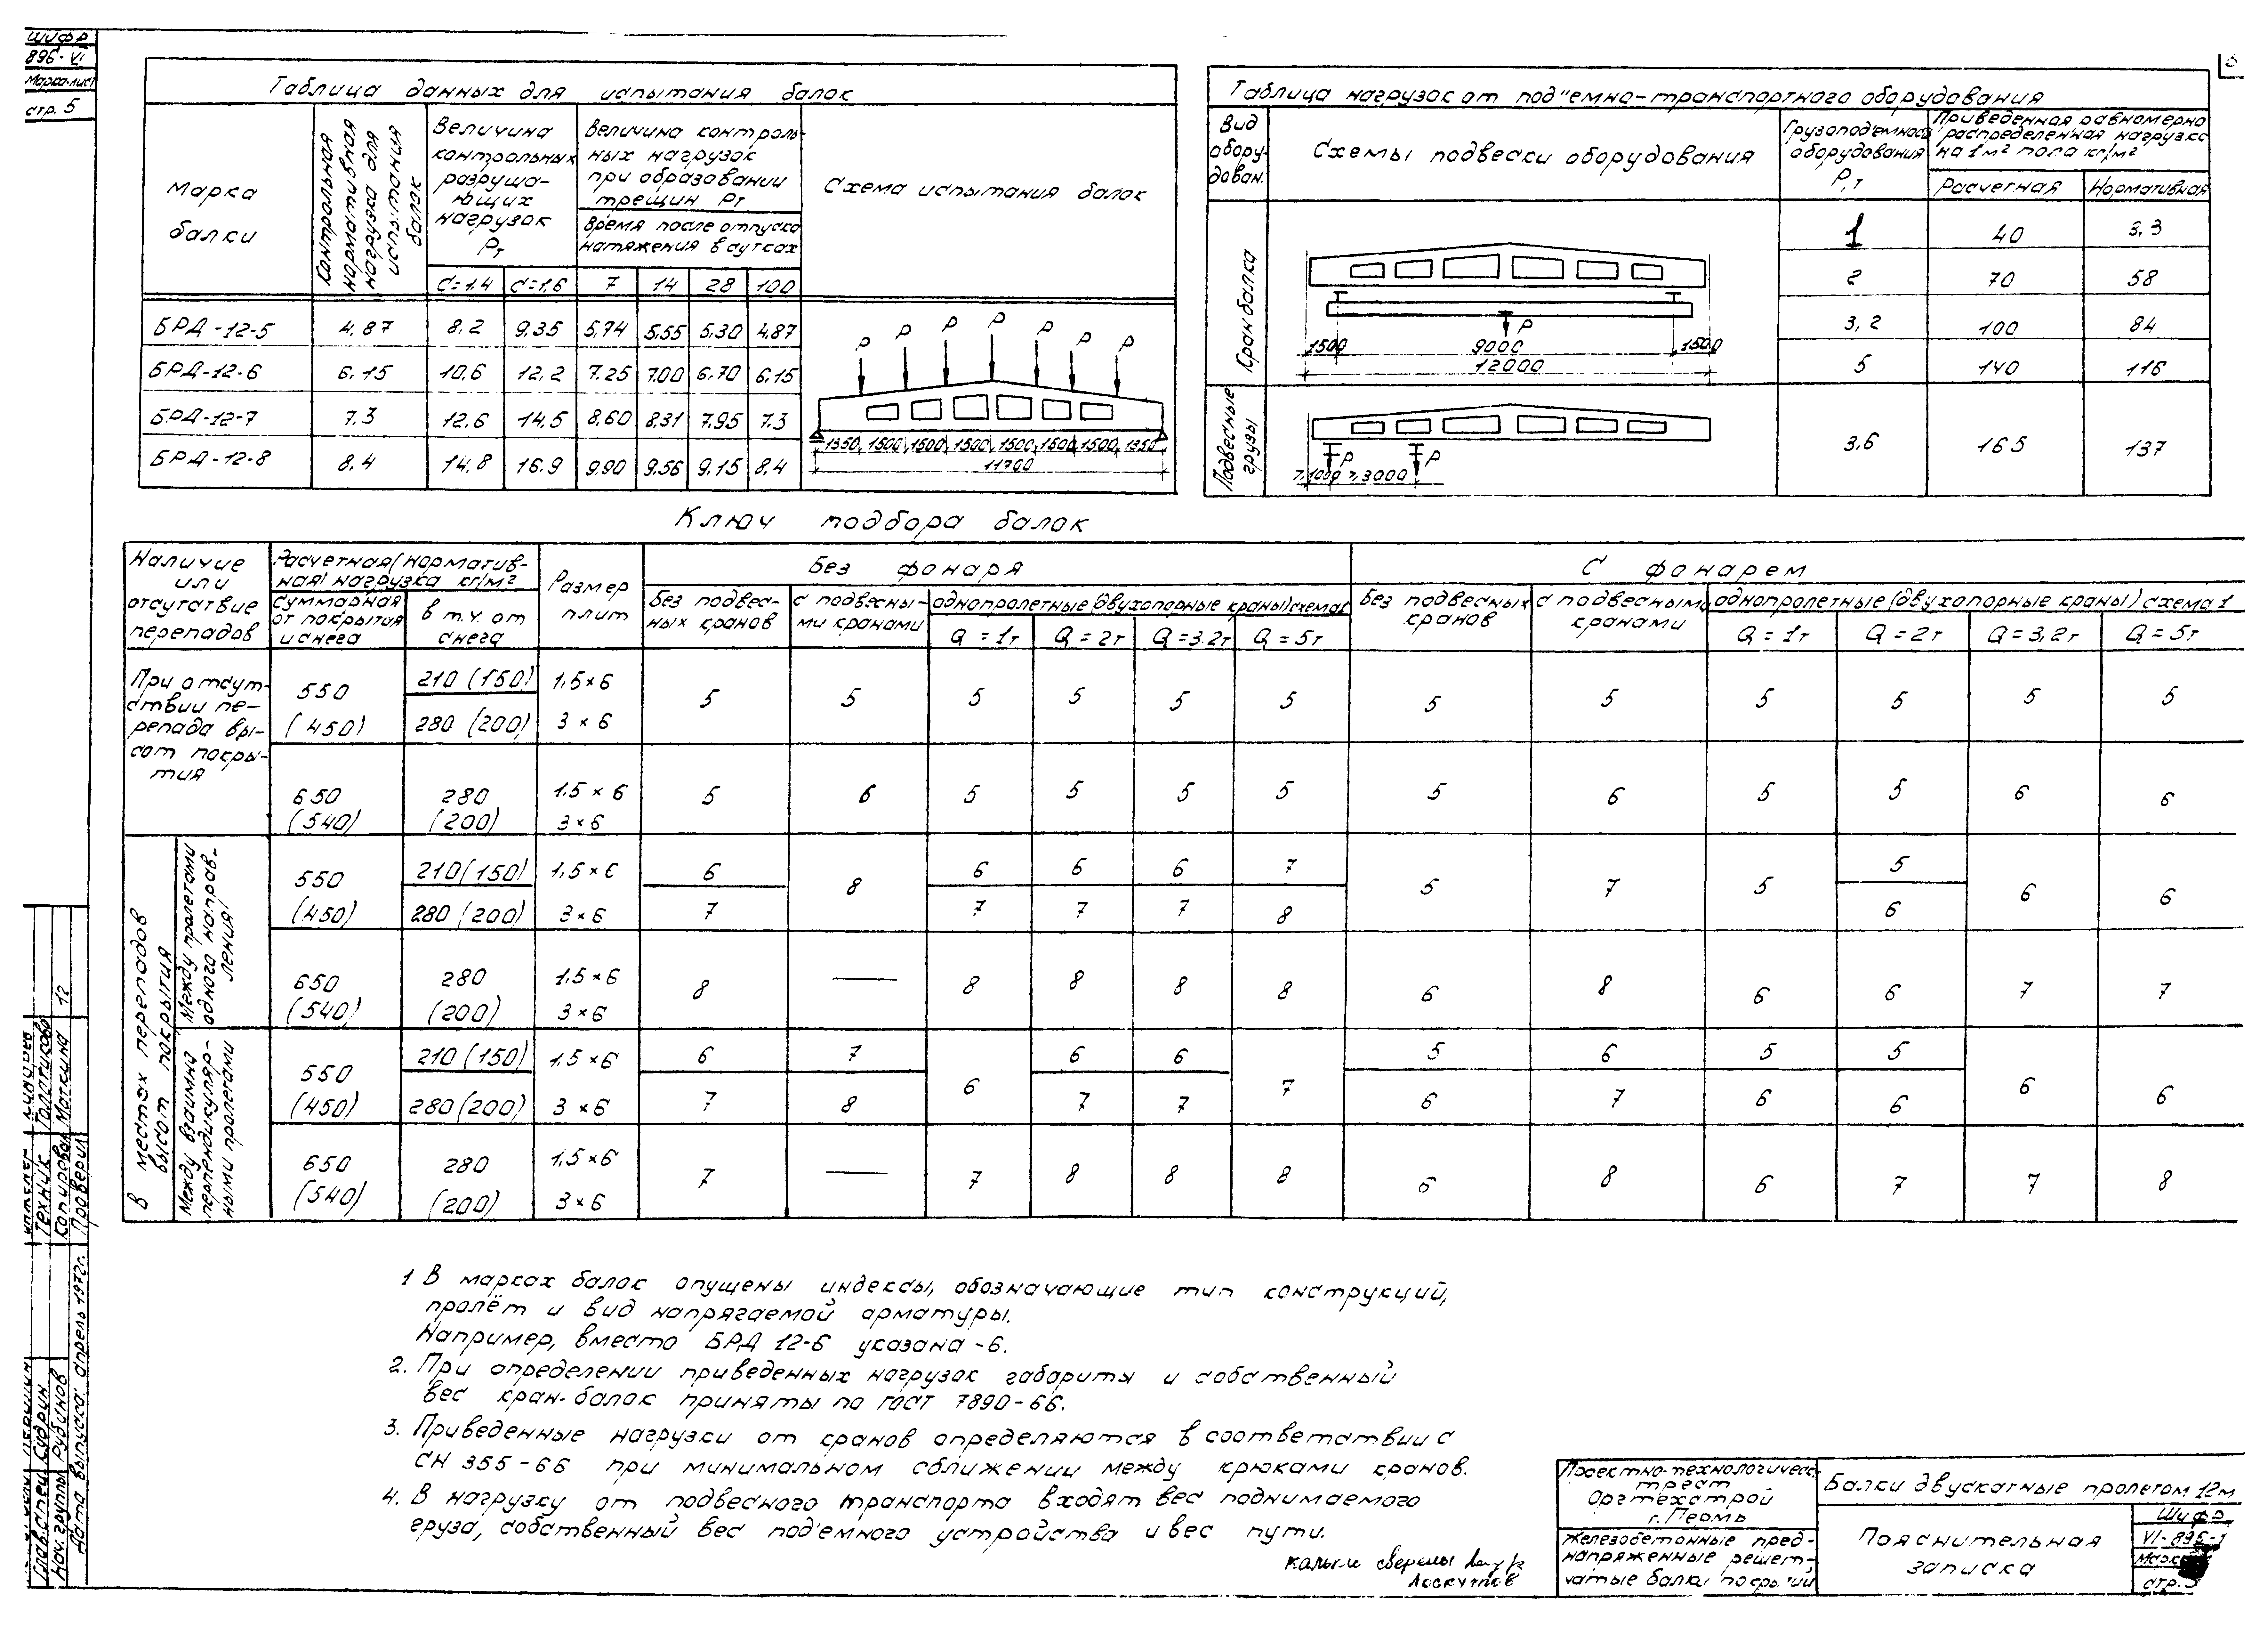 шифр
896-VI
Марка-лист
стр. 5
Таблица данных для испытания балок
Марка балки
Контрольная нормативная нагрузка для испытания балок
Величина контрольных разрушающих нагрузок Рт
Величина контрольных нагрузок при образовании трещин Рт
Время после отпуска натяжения в сутках
Схема испытания балок
С=1,4 С=1,6 7 14 28 100
БРД-12-5 4,87 8,2 9,35 5,74 5,55 5,30 4,87
БРД-12-6 6,15 10,6 12,2 7.25 7.00 6,70 6,15
БРД-12-7 7,3 12,6 14,5 8,60 8,31 7,95 7.3
БРД-12-8 8,4 14,8 16.9 9.90 9.56 9,15 8,4
Р Р Р Р Р Р Р
1350 1500 1500 1500 1500 1500 1500 1350
11700
Таблица нагрузок от под"емно-транспортного оборудования
Вид оборудован.
Схемы подвески оборудования
Грузоподъемность оборудования Р, т
Приведенная равномерно распределенная нагрузка на 1м² пола кг/м²
Расчетная Нормативная
Кран балка
1 40 3,3
2 70 58
3,2 100 84
5 140 116
Р
1500 9000 1500
12000
Подвесные грузы
3,6 165 137
Р Р
≥1000 ≥3000
Ключ подбора балок
Наличие или отсутствие перепадов
Расчетная (нормативная) нагрузка кг/м²
Суммарная от покрытия и снега
в т.ч. от снега
Размер плит
Без фонаря
С фонарем
Без подвесных кранов
с подвесными кранами
однопролетные (двухопорные краны) схема1
Q = 1т Q = 2т Q = 3.2т Q = 5т
Без подвесных кранов
с подвесными кранами
однопролетные (двухопорные краны) схема 1
Q = 1т Q = 2т Q = 3,2т Q = 5т
При отсутствии перепада высот покрытия
550 (450) 210 (150) 1,5×6 280 (200) 3×6 5 5 5 5 5 5 5 5 5 5 5 5
650 (540) 280 (200) 1.5×6 3×6 5 6 5 5 5 5 5 6 5 5 6 6
В местах перепадов высот покрытия
Между пролетами одного направления
550 210(150) 1,5×6 6 8 6 6 6 7 5 7 5 5 6 6
(450) 280 (200) 3×6 7 7 7 7 8 6
650 (540) 280 (200) 1,5×6 3×6 8 — 8 8 8 8 6 8 6 6 7 7
Между взаимно перпендикулярными пролетами
550 210 (150) 1,5×6 6 7 6 6 6 7 5 6 5 5 6 6
(450) 280(200) 3×6 7 8 7 7 6 7 6 6
650 (540) 280 (200) 1,5×6 3×6 7 — 7 8 8 8 6 8 6 7 7 8
1 В марках балок опущены индексы, обозначающие тип конструкций,
пролёт и вид напрягаемой арматуры.
Например, вместо БРД 12-6 указана -6.
2. При определении приведенных нагрузок габариты и собственный
вес кран-балок приняты по ГОСТ 7890-66.
3. Приведенные нагрузки от кранов определяются в соответствии с
СН 355-66 при минимальном сближении между крюками кранов.
4. В нагрузку от подвесного транспорта входят вес поднимаемого
груза, собственный вес под'емного устройства и вес пути.
кальки сверены
Лоскутов
Проектно-технологическ.
трест
Оргтехстрой
г. Пермь
Железобетонные пред-
напряженные решет-
чатые балки покрытий
Балки двускатные пролетом 12м
Пояснительная
записка
Шифр
VI-896-1
Марка
стр. 5
Техник
Копировал Маткина
Проверил
12
Глав.спец Судрин
Нач. группы Рубинов
Дата выпуска: апрель 1972г.